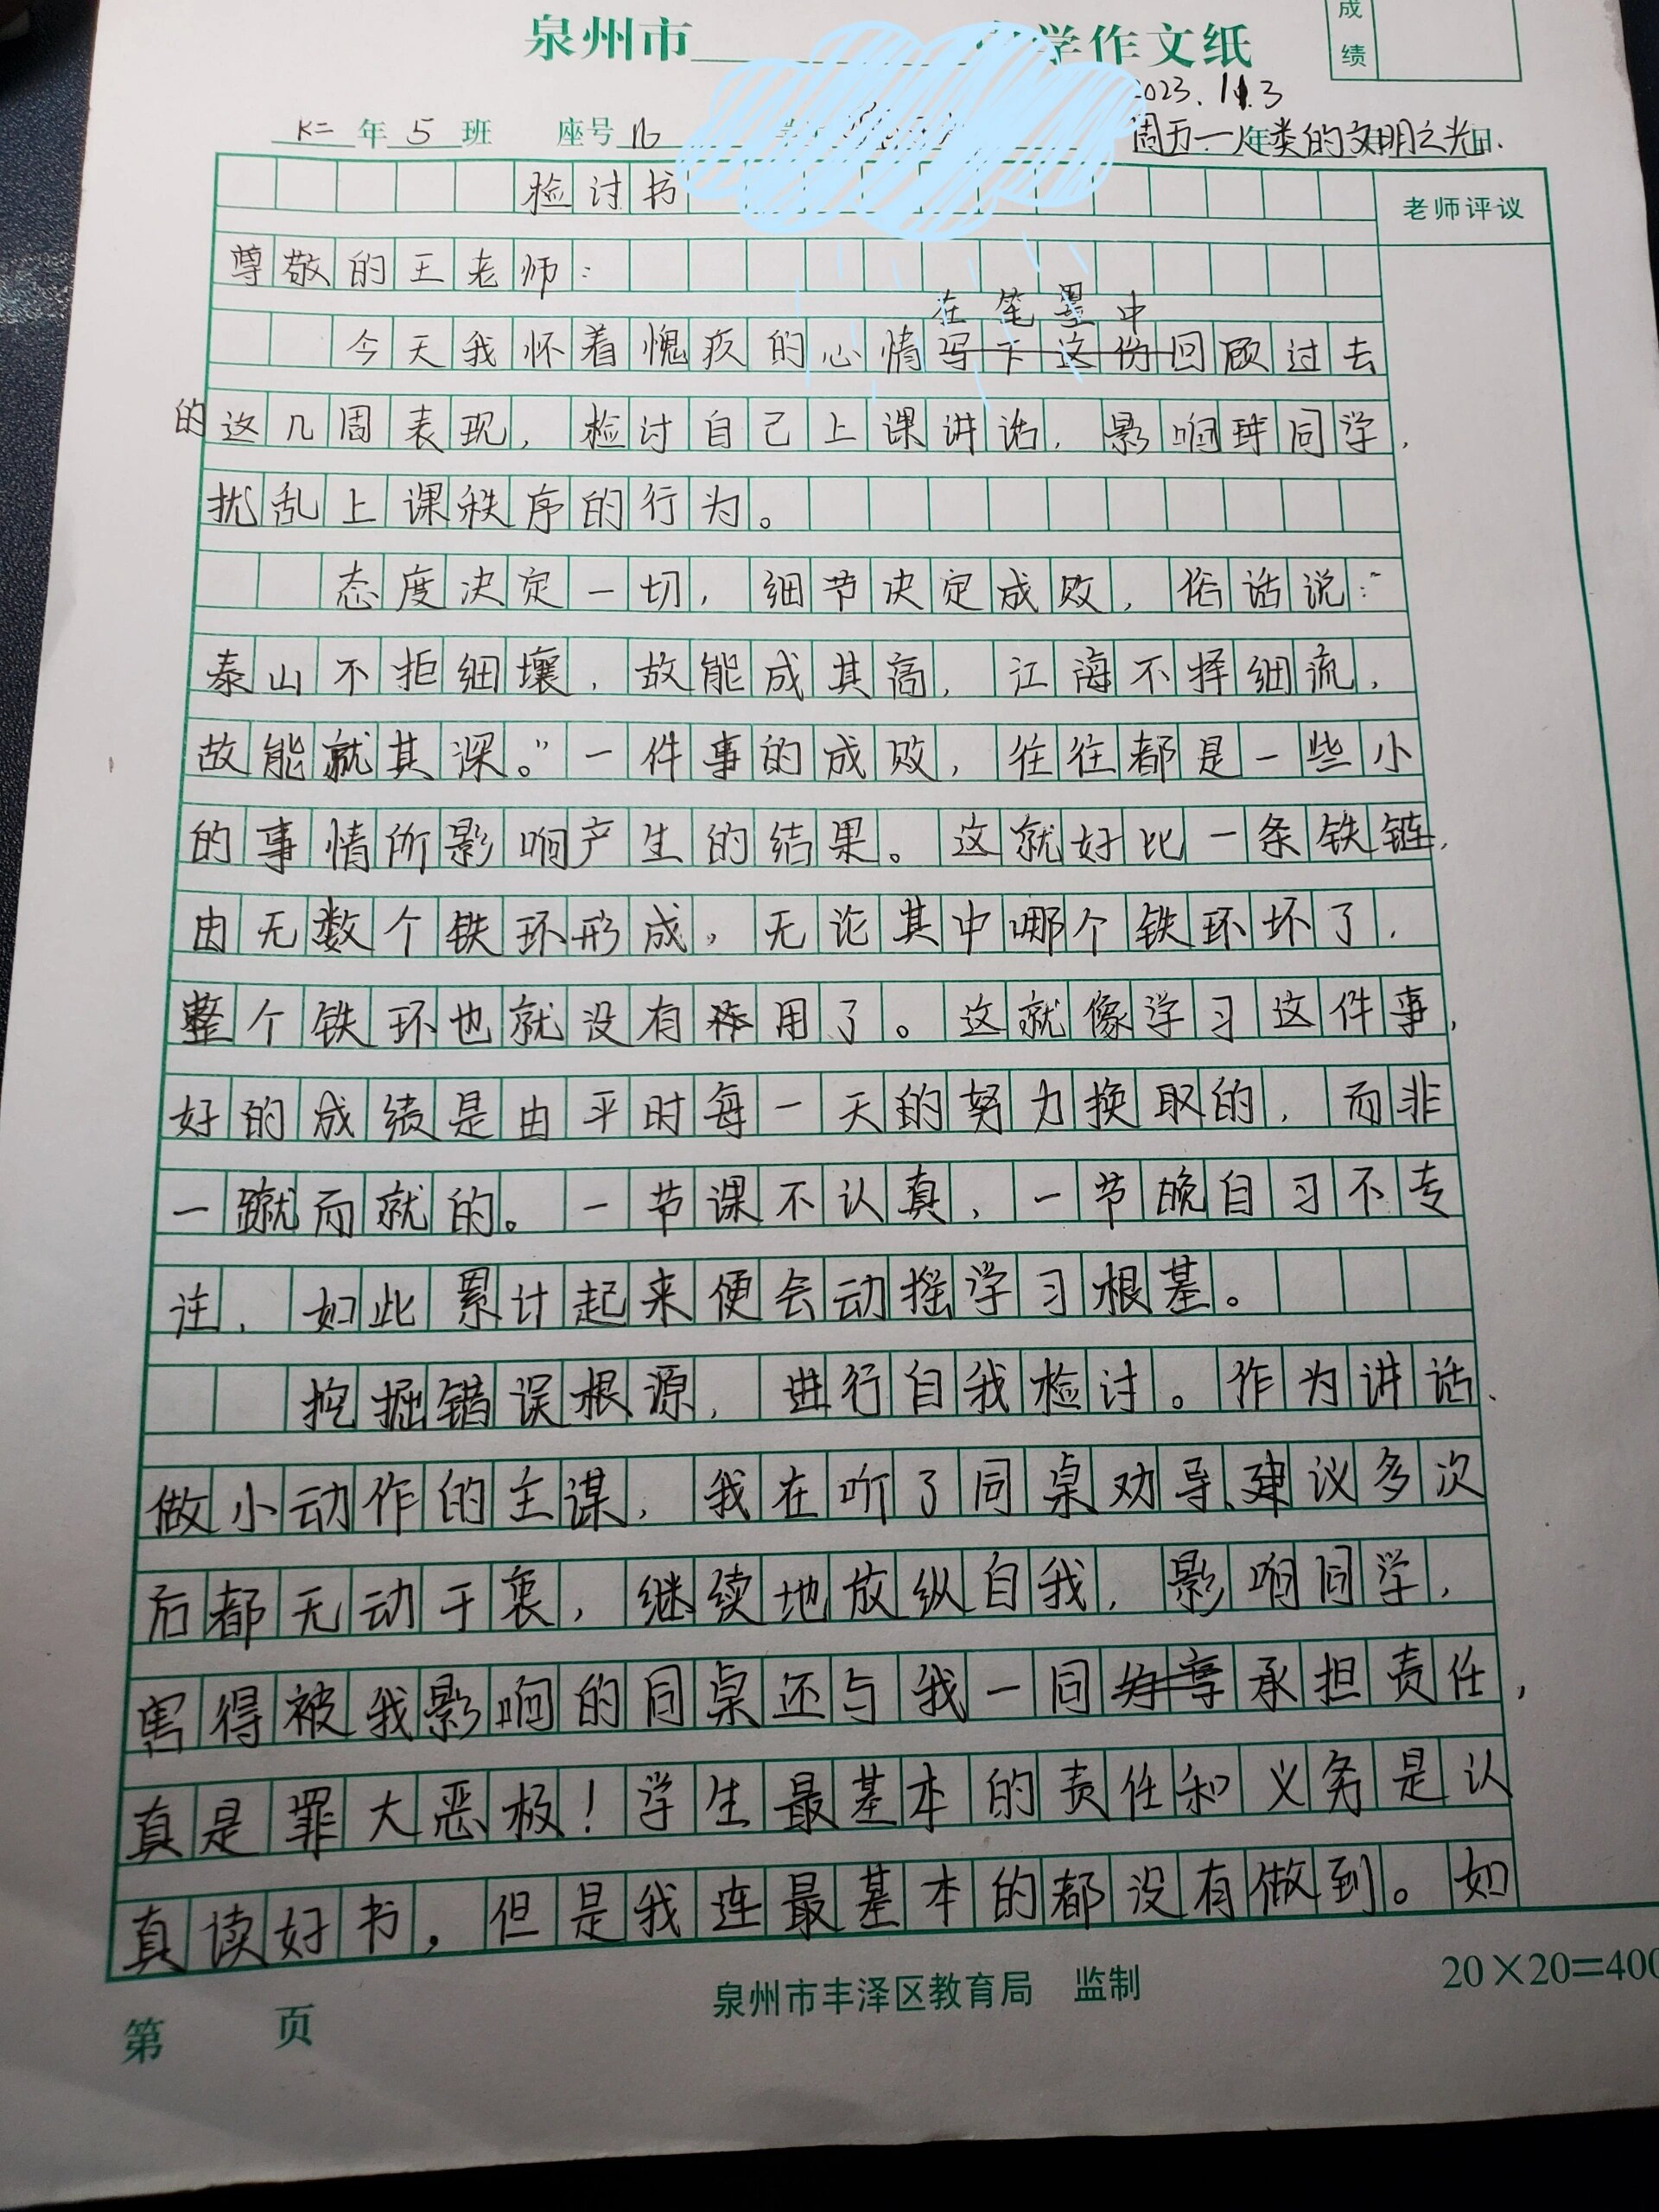 成绩
泉州市 学作文纸
2023.11.3
K二年5班 座号16
周五一人类的文明之光
检讨书
老师评议
尊敬的王老师：
在笔墨中
今天我怀着愧疚的心情写下这份回顾过去
的这几周表现，检讨自己上课讲话，影响同学，
扰乱上课秩序的行为。
态度决定一切，细节决定成败，俗话说：“
泰山不拒细壤，故能成其高，江海不择细流，
故能就其深。”一件事的成败，往往都是一些小
的事情所影响产生的结果。这就好比一条铁链，
由无数个铁环形成，无论其中哪个铁环坏了，
整个铁环也就没有作用了。这就像学习这件事，
好的成绩是由平时每一天的努力换取的，而非
一蹴而就的。一节课不认真，一节晚自习不专
注，如此累计起来便会动摇学习根基。
挖掘错误根源，进行自我检讨。作为讲话、
做小动作的主谋，我在听了同桌劝导、建议多次
后都无动于衷，继续地放纵自我，影响同学，
害得被我影响的同桌还与我一同承担责任，
真是罪大恶极！学生最基本的责任和义务是认
真读好书，但是我连最基本的都没有做到。如
泉州市丰泽区教育局 监制
20×20=400
第 页